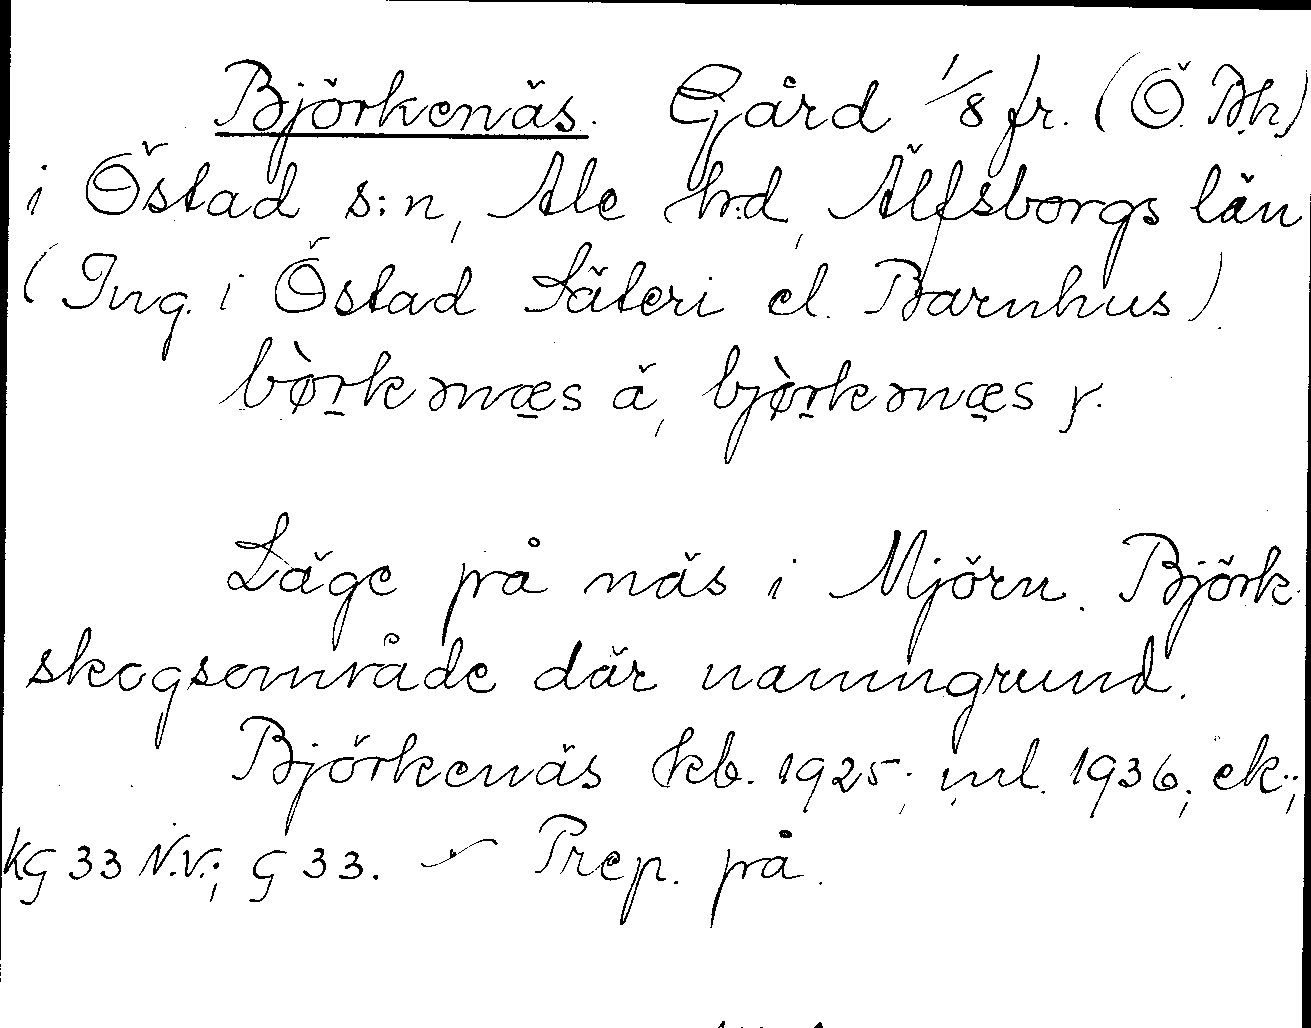 Björkenäs. Gård 1/8 fr. (Ö. Bh)
i Östad s:n, Ale h:d, Älfsborgs län
(Ing. i Östad Säteri el. Barnhus).
bø̀rkenæs ä, bjø̀rkenæs y.
Läge på näs i Mjörn. Björk-
skogsområde där namngrund.
Björkenäs kb. 1925; ml. 1936; ek;
KG 33 N.V.; G 33. – Prep. på.